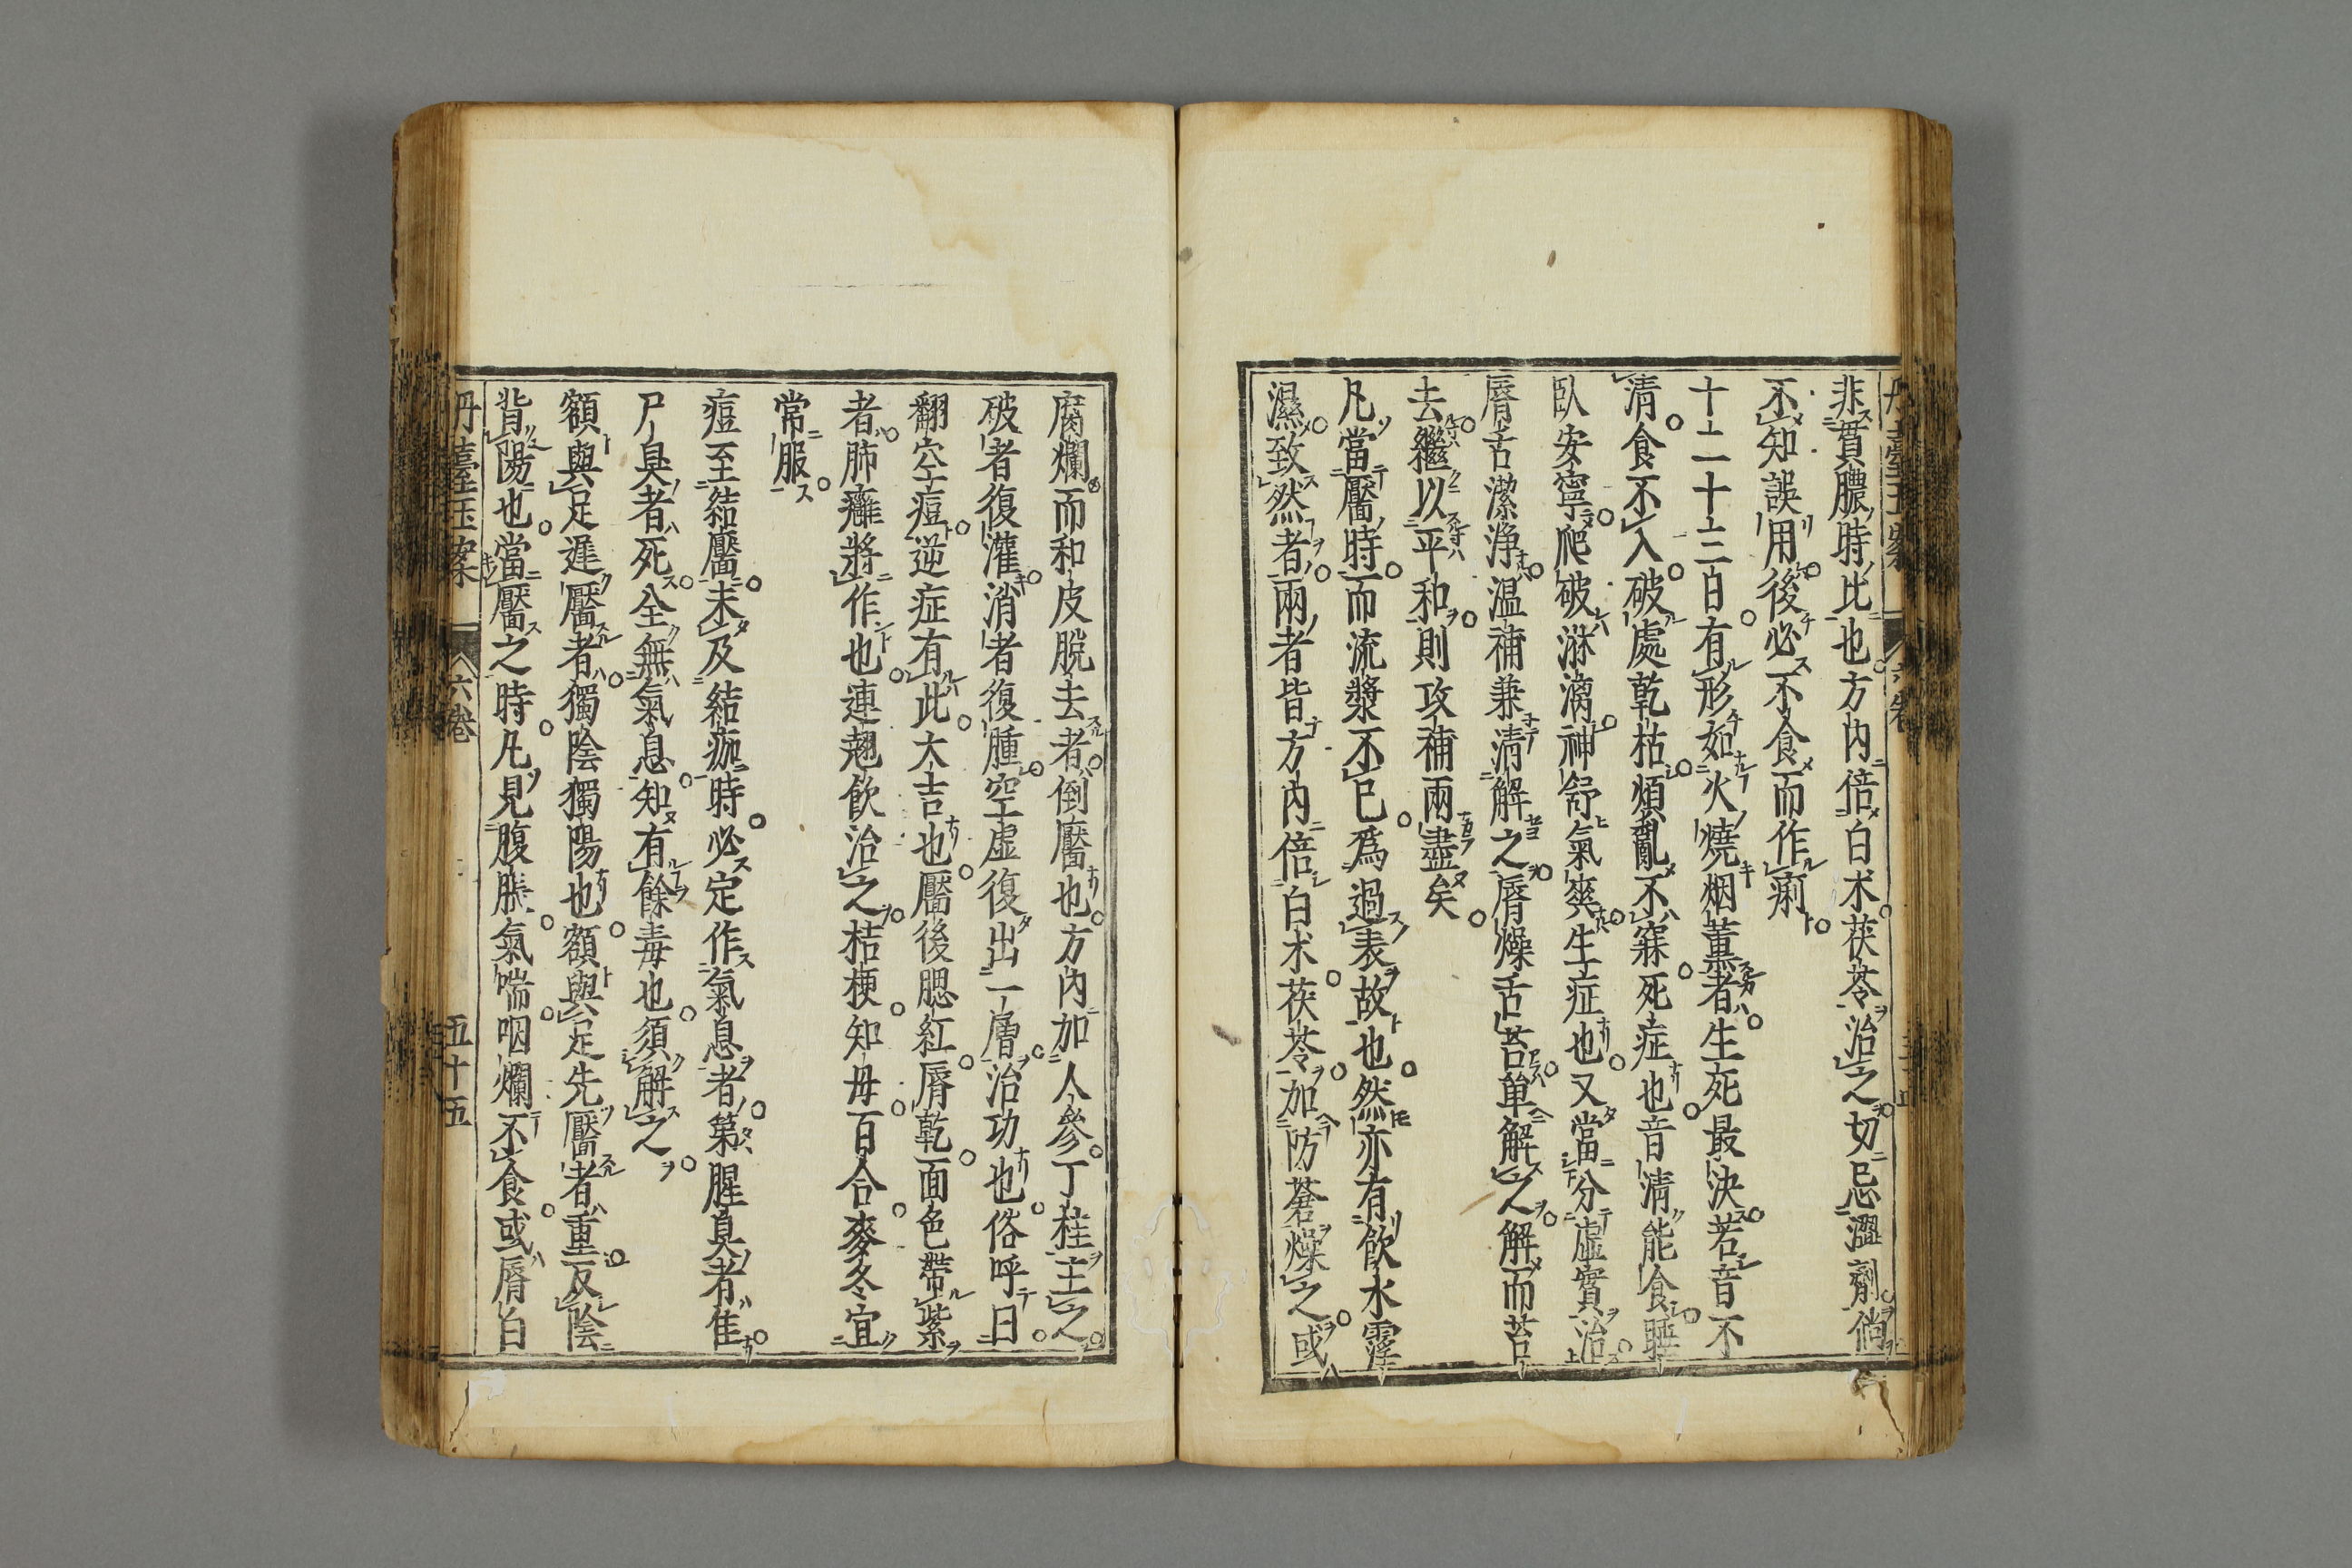 非貫膿時比也方內倍白朮茯苓治之切忌澀劑倘
不知誤用後必不食而作痢
十二十三日有形如火燒烟薰者生死最決若音不
清食不入破處乾枯煩亂不寐死症也音清能食睡
臥安寧爬破淋漓神舒氣爽生症也又當分虛實治
唇舌潔淨溫補兼清解之唇燥舌苔单解之解而苔
去繼以平和則攻補兩盡矣
凡當靨時而流漿不已爲過表故也然亦有飲水
濕致然者兩者皆方內倍白朮茯苓加防蒼燥之或
腐爛而和皮脫去者倒靨也方內加人參丁桂主之
破者復灌消者復腫空虛復出一層治功也俗呼曰
翻空痘逆症有此大吉也靨後腮紅唇乾面色帶紫
者肺癰將作也連翹飲治之桔梗知毋百合麥冬宜
常服
痘至結靨未及結痂時必定作氣息者第腥臭者佳
尸臭者死全無氣息知有餘毒也須解之
額與足遲靨者獨陰獨陽也額與足先靨者重反陰
背陽也當靨之時凡見腹脹氣喘咽爛不食或唇白
丹臺玉案 六卷 五十五